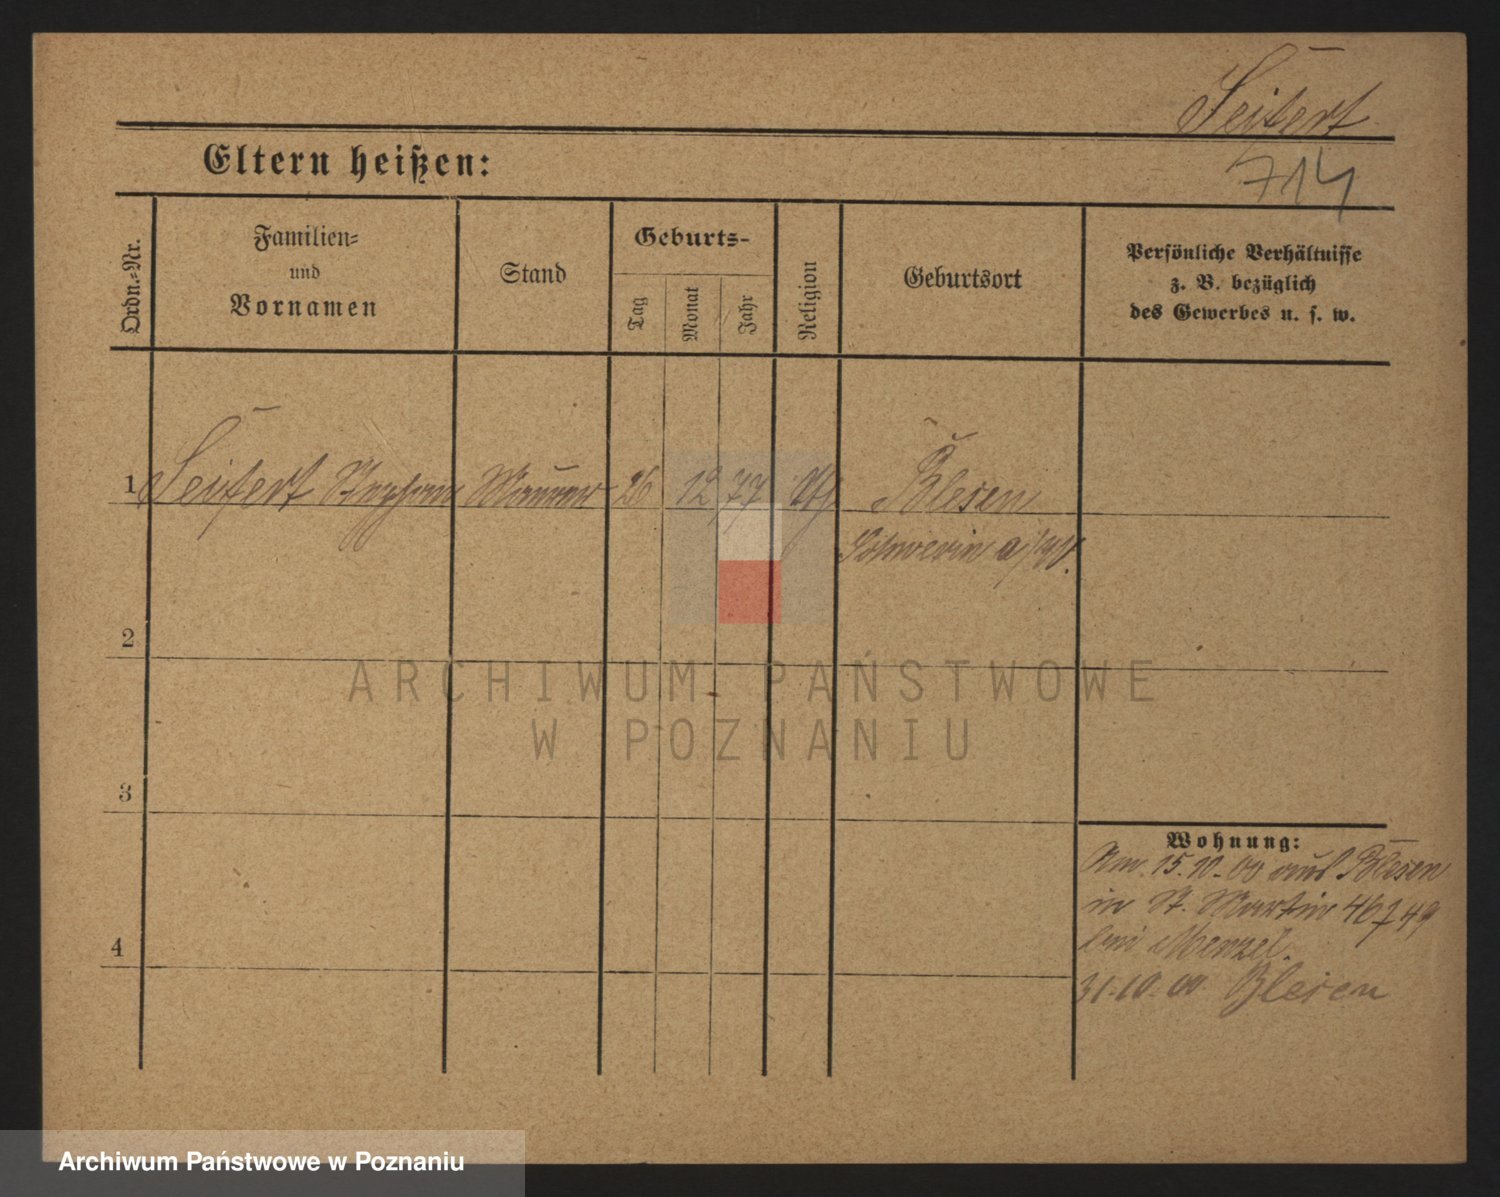 Seifert
714
Eltern heißen:
Ordn.=Nr.
Familien=
und
Vornamen
Stand
Geburts-
Tag
Monat
Jahr
Religion
Geburtsort
Persönliche Verhältnisse
z. B. bezüglich
des Gewerbes u. s. w.
1 Seifert Stephan Maurer 26 12 77 kth Blesen
Schwerin a/W.
2
3
4
Wohnung:
15.10.00 aus Blesen
in St. Martin 46/49
bei Menzel.
31.10.00 Blesen
ARCHIWUM PAŃSTWOWE
W POZNANIU
Archiwum Państwowe w Poznaniu